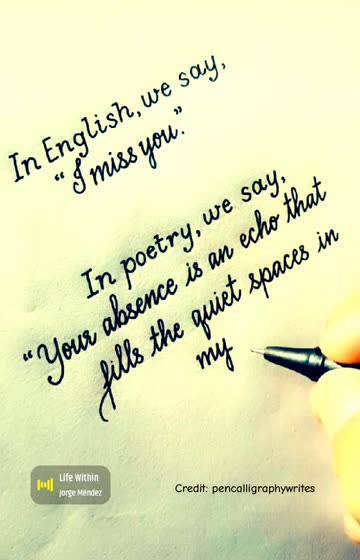 In English, we say,
“I miss you.”
In poetry, we say,
“Your absence is an echo that
fills the quiet spaces in
my
Life Within
Jorge Méndez
Credit: pencalligraphywrites